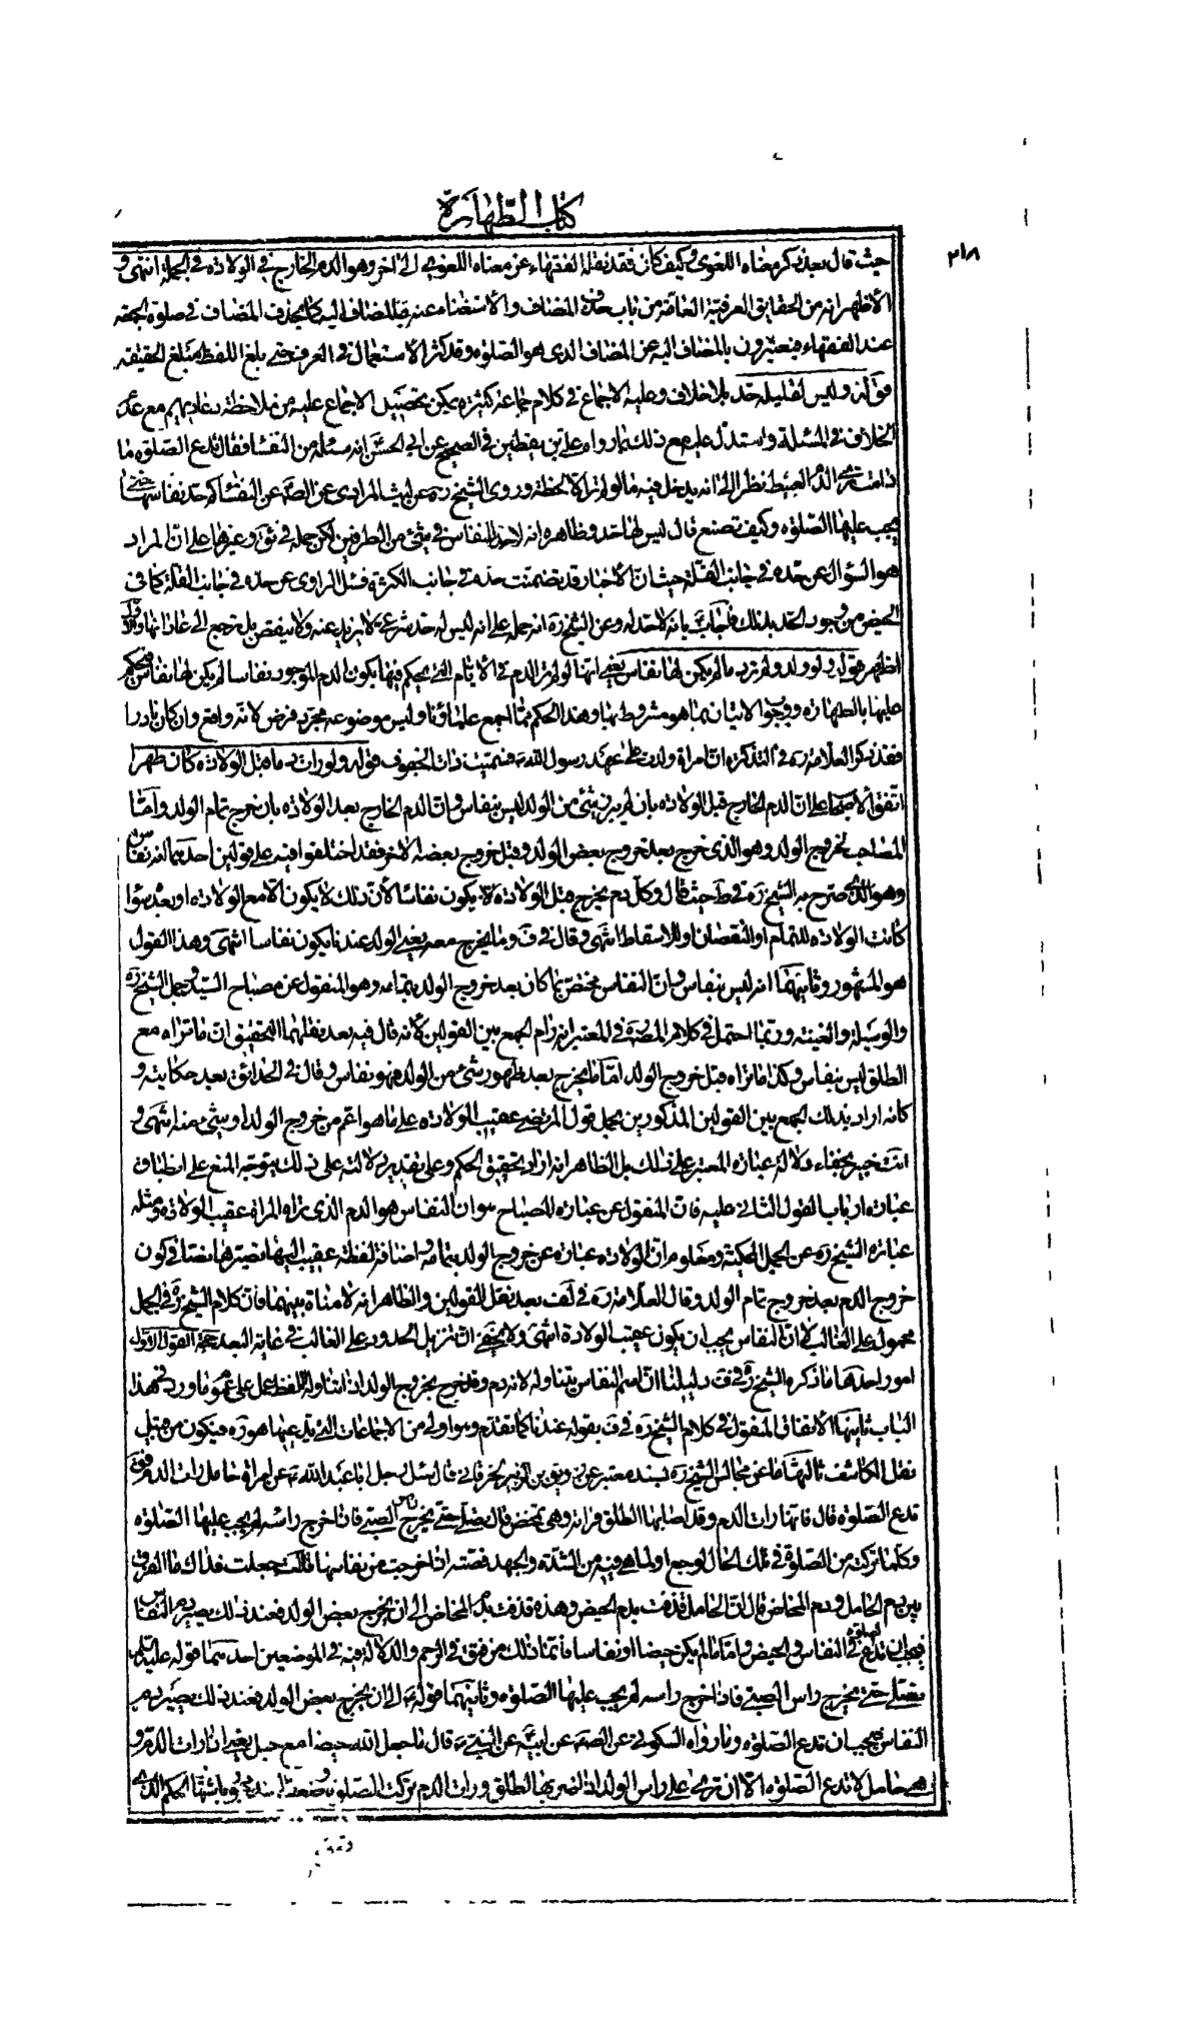 كتاب الطهارة
٣١٨
حيث قال بعد ذكر معناه اللغوي وكيف كان فقد نقله الفقهاء عن معناه اللغوي إلى اخر وهو الدم الخارج في الولادة في الجملة انتهى و
الأظهر انه من الحقايق العرفية العامة من باب حذف المضاف والاستغناء عنه بالمضاف اليه كما يحذف المضاف في صلوة الجمعة
عند الفقهاء فيعبرون بالمضاف اليه عن المضاف الذي هو الصلوة وقد كثر الاستعمال في العرف حتى بلغ اللفظ مبلغ الحقيقة
قوله وليس لقليله حد بلا خلاف وعليه الاجماع في كلام جماعة كثيرة يمكن تحصيل الاجماع عليه من ملاحظة دعاويهم مع عدم
الخلاف في المسئلة واستدل عليه مع ذلك بما رواه علي بن يقطين في الصحيح عن ابي الحسن انه سئله عن النفساء فقال تدع الصلوة ما
دامت ترى الدم العبيط نظرا إلى انه يدخل فيه ما لو لم تره الا لحظة وروى الشيخ ره عن ليث المرادي عن الصم عن النفساء كم حد نفاسها حتى
يجب عليها الصلوة وكيف تصنع قال ليس لها حد وظاهره انه لا حد للنفاس في شيء من الطرفين لكن حمله في يب وغيرها على ان المراد
هو السؤال عن حده في جانب القلة حيث ان الاخبار قد تضمنت حده في جانب الكثرة فسئل الراوي عن حده في جانب القلة كما في
الحيض من وجود الحد بذلك فاجاب بانه لا حد له وعن الشيخ ره انه حمله على انه ليس له حد شرعي لا يزيد عنه ولا ينقص بل ترجع إلى عاداتها والاول
اظهر قوله ولو ولدت ولم تر دما لم يكن لها نفاس يعني انها لو لم تر الدم في الأيام التي يحكم فيها بكون الدم الموجود نفاسا لم يكن لها نفاس فيحكم
عليها بالطهارة ووجوب الاتيان بما هو مشروط بها وهذا الحكم مما اجمع علماؤنا وليس موضوعه مجرد فرض لانه واقع وان كان نادرا
فقد ذكر العلامة ره في التذكرة ان امراة ولدت على عهد رسول الله ص فسميت ذات الجفوف قوله ولو رات دما قبل الولادة كان طهرا
اتفق الاصحاب على ان الدم الخارج قبل الولادة بان لم يبرز شيء من الولد ليس بنفاس وان الدم الخارج بعد الولادة بان خرج تمام الولد واما
المصاحب لخروج الولد وهو الذي خرج بعد خروج بعض الولد وقبل خروج بعضه الاخر فقد اختلفوا فيه على قولين احدهما انه نفاس
وهو الذي صرح به الشيخ ره في ط حيث قال وكل دم يخرج قبل الولادة لا يكون نفاسا لأن ذلك لا يكون الا مع الولادة او بعده سواء
كانت الولادة للتمام او النقصان او للاسقاط انتهى وقال في ف وما يخرج معه يعني الولد عندنا يكون نفاسا انتهى وهذا القول
هو المشهور وثانيهما انه ليس بنفاس وان النفاس مختص بما كان بعد خروج الولد بتمامه وهو المنقول عن مصباح السيد وجمل الشيخ ره
والوسيلة والغنية وربما احتمل في كلام المصنف في المعتبر انه رام الجمع بين القولين لأنه قال فيه بعد نقلهما التحقيق ان ما تراه مع
الطلق ليس بنفاس وكذا ما تراه قبل خروج الولد اما ما يخرج بعد ظهور شيء من الولد فهو نفاس وقال في الحدائق بعد حكايته و
كانه اراد بذلك الجمع بين القولين المذكورين بحمل قول المرتضى عقيب الولادة على ما هو اعم من خروج الولد او شيء منه انتهى و
انت خبير بخفاء دلالة عبارة المعتبر على ذلك بل الظاهر انه اراد تحقيق الحكم وعلى تقدير دلالته على ذلك يتوجه المنع على انطباق
عبارة ارباب القول الثاني عليه فان المنقول عن عبارة المصباح هو ان النفاس هو الدم الذي تراه المراة عقيب الولادة ومثله
عبارة الشيخ ره عن الجمل المحكية ومعلوم ان الولادة عبارة عن خروج الولد بتمامه واضافة لفظة عقيب اليها يصيرها نصا في كون
خروج الدم بعد خروج تمام الولد وقال العلامة ره في لف بعد نقل القولين والظاهر انه لا منافاة بينهما فان كلام الشيخ ره في الجمل
محمول على الغالب لا ان النفاس يجب ان يكون عقيب الولادة انتهى ولا يخفى ان تنزيل الحدود على الغالب في غاية البعد حجة القول الاول
امور احدها ما ذكره الشيخ ره في ف دليلنا ان اسم النفاس يتناوله لانه دم وقد خرج بخروج الولد اذا تناوله اللفظ حمل على عموم ما ورد في هذا
الباب ثانيها الاتفاق المنقول في كلام الشيخ ره في ف بقوله عندنا كما تقدم وهو اولى من الاجماعات التي يدعيها هو ره فيكون من قبيل
نقل الكاشف ثالثها ما عن مجالس الشيخ ره بسند معتبر عن زريق بن الزبير الخرقاني قال سئل رجل ابا عبد الله ع عن امراة حامل رات الدم فقال
تدع الصلوة قال فانها رات الدم وقد اصابها الطلق فراته وهي تمخض قال تصلي حتى يخرج راس الصبي فاذا خرج راسه لم يجب عليها الصلوة
وكلما تركته من الصلوة في تلك الحال لوجع او لما هي فيه من الشدة والجهد قضته اذا خرجت من نفاسها قالت جعلت فداك ما الفرق
بين دم الحامل ودم المخاض قال ان الحامل قذفت بدم الحيض وهذه قذفت بدم المخاض الى ان يخرج بعض الولد فعند ذلك يصير دم النفاس
فيجب ان تدع الصلوة في النفاس والحيض واما ما لم يكن حيضا او نفاسا فانما ذلك من فتق في الرحم والدلالة فيه في الموضعين احدهما قوله عليه السلم
تصلي حتى يخرج راس الصبي فاذا خرج راسه لم يجب عليها الصلوة وثانيهما قوله ع الى ان يخرج بعض الولد فعند ذلك يصير دم
النفاس فيجب ان تدع الصلوة وما رواه السكوني عن الصم عن ابيه عن النبي ص قال ما جعل الله حيضا مع حبل يعني اذا رات الدم و
هي حامل لا تدع الصلوة الا ان ترى على راس الولد اذا ضربها الطلق ورات الدم تركت الصلوة